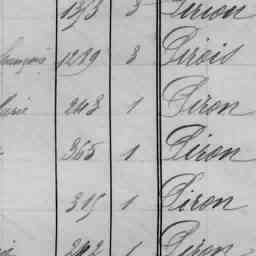 1353 3 Piron
François 1219 3 Pirois
Marie 248 1 Piron
365 1 Piron
315 1 Piron
242 1 Piron